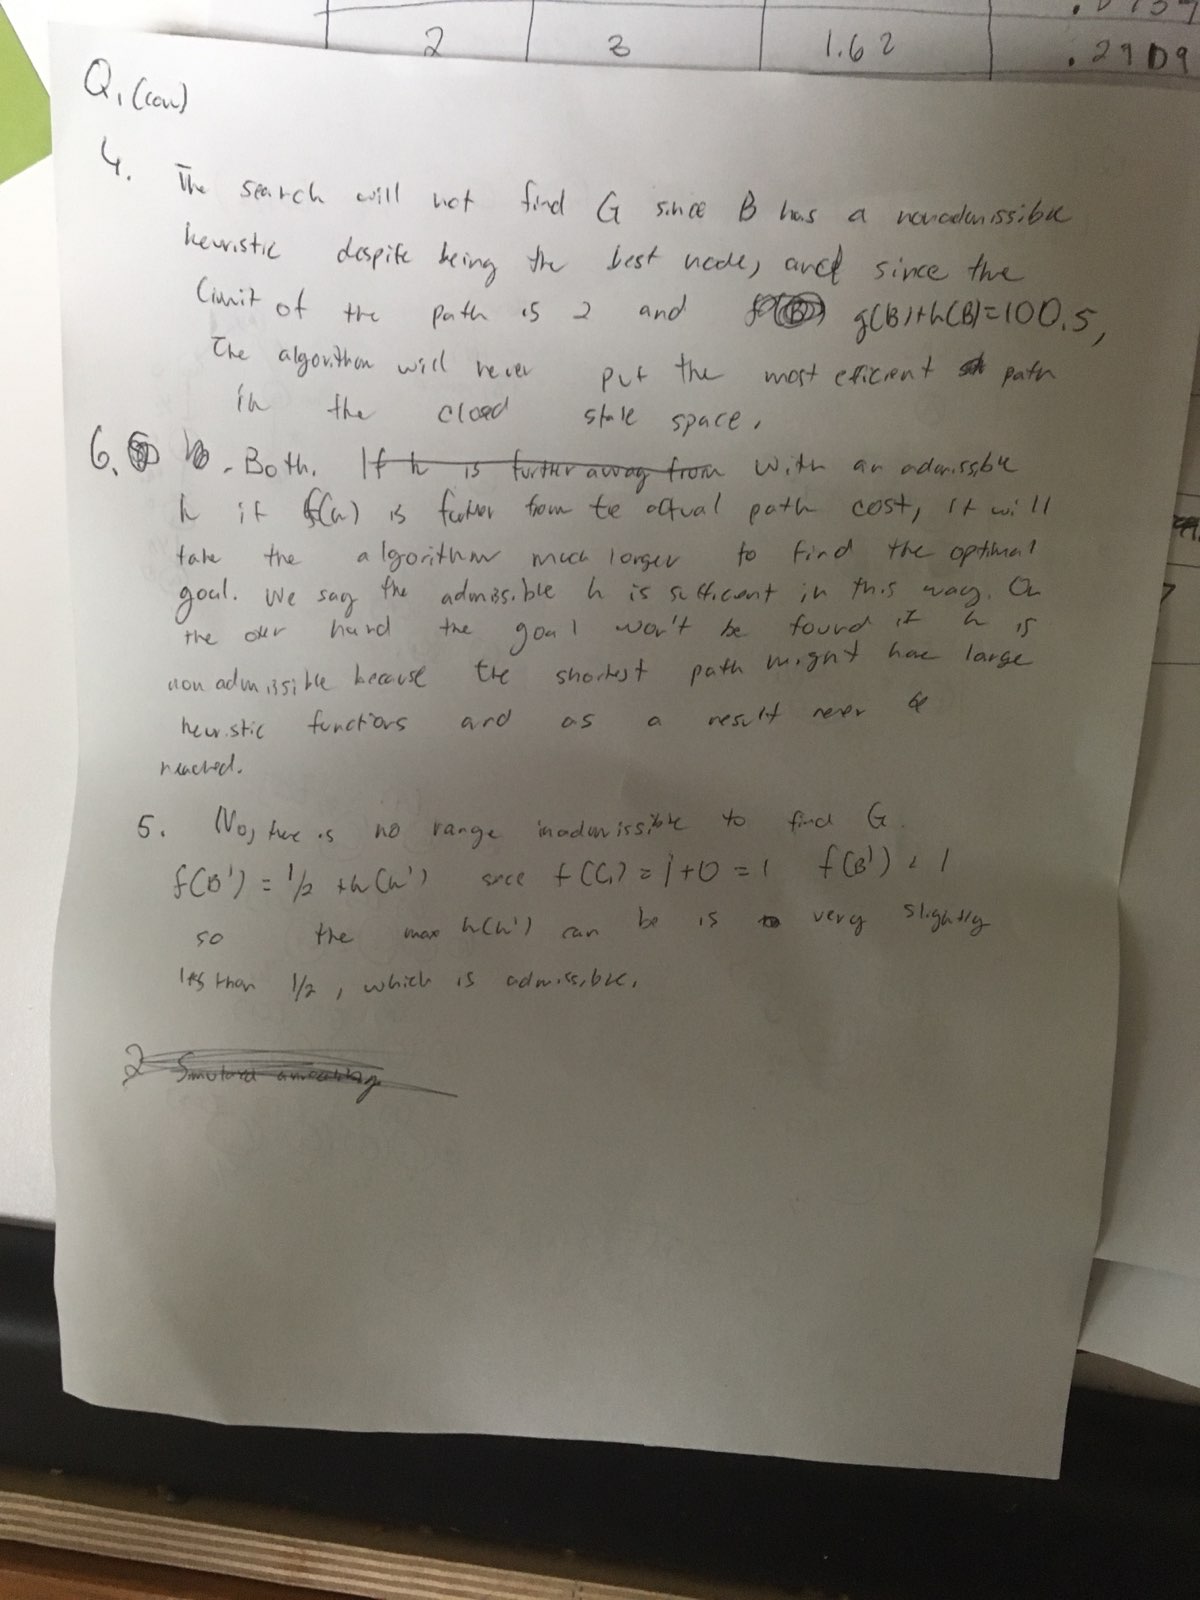 2 3 1.62 .2909
Q1 (con)
4. The search will not find G since B has a nonadmissible
heuristic despite being the best node, and since the
limit of the path is 2 and g(B)+h(B)=100.5,
The algorithm will never put the most efficient path
in the closed state space.
6. Both. If h is further away from With an admissble
h if f(n) is further from te actual path cost, it will
take the algorithm much longer to find the optimal
goal. We say the admissible h is sufficient in this way. On
the other hand the goal won't be found if h is
non admissible because the shortest path might have large
heuristic functions and as a result never be
reached.
5. No, there is no range inadmissible to find G.
f(B') = 1/2 + h(h') since f(C) = 1+0 = 1 f(B') < 1
so the max h(h') can be is very slightly
less than 1/2, which is admissible.
2 Simulated annealing